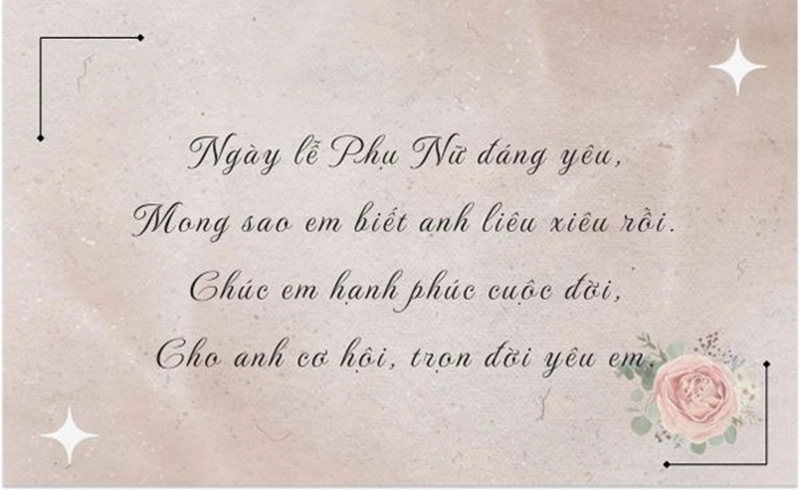 Ngày lễ Phụ Nữ đáng yêu,
Mong sao em biết anh liêu xiêu rồi.
Chúc em hạnh phúc cuộc đời,
Cho anh cơ hội, trọn đời yêu em.